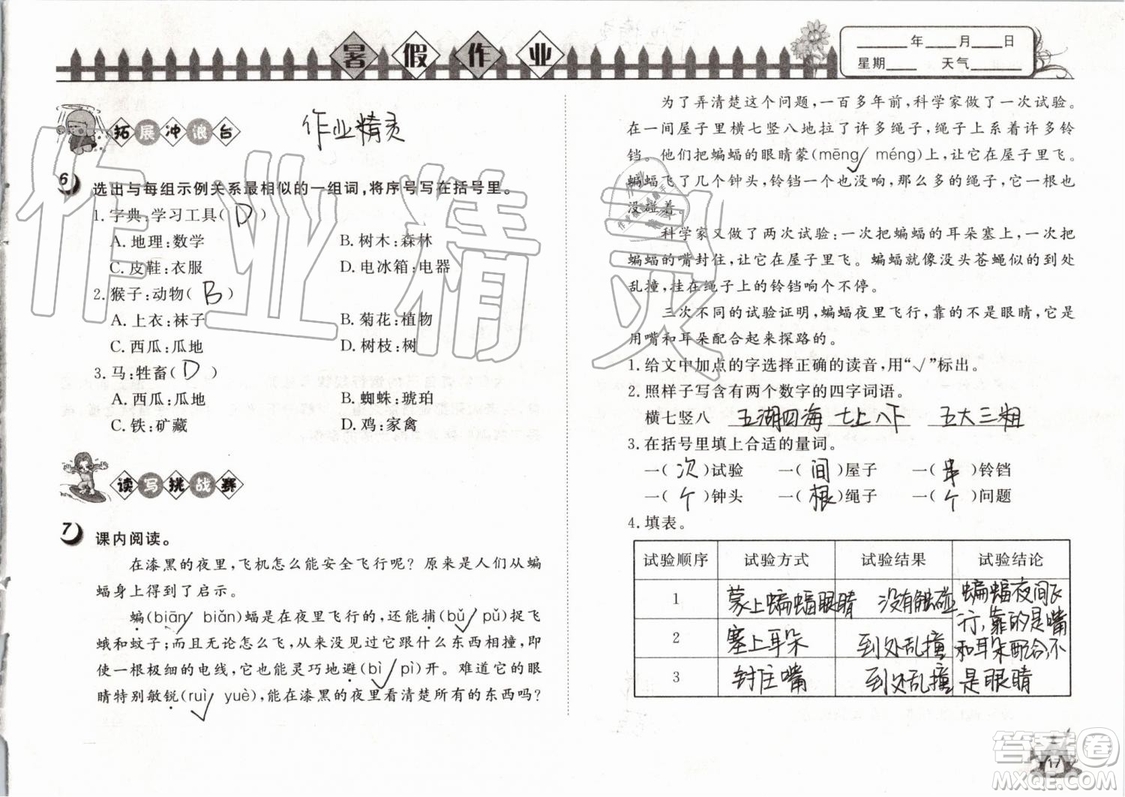 暑假作业
____年____月____日
星期____ 天气____
拓展冲浪台
作业精灵
6 选出与每组示例关系最相似的一组词,将序号写在括号里。
1.字典:学习工具( D )
A.地理:数学 B.树木:森林
C.皮鞋:衣服 D.电冰箱:电器
2.猴子:动物( B )
A.上衣:袜子 B.菊花:植物
C.西瓜:瓜地 D.树枝:树
3.马:牲畜( D )
A.西瓜:瓜地 B.蜘蛛:琥珀
C.铁:矿藏 D.鸡:家禽
读写挑战赛
7 课内阅读。
在漆黑的夜里,飞机怎么能安全飞行呢?原来是人们从蝙
蝠身上得到了启示。
蝙(biān biǎn)蝠是在夜里飞行的,还能捕(bǔ√ pǔ)捉飞
蛾和蚊子;而且无论怎么飞,从来没见过它跟什么东西相撞,即
使一根极细的电线,它也能灵巧地避(bì√ pì)开。难道它的眼
睛特别敏锐(ruì√ yuè),能在漆黑的夜里看清楚所有的东西吗?
为了弄清楚这个问题,一百多年前,科学家做了一次试验。
在一间屋子里横七竖八地拉了许多绳子,绳子上系着许多铃
铛。他们把蝙蝠的眼睛蒙(mēng√ méng)上,让它在屋子里飞。
蝙蝠飞了几个钟头,铃铛一个也没响,那么多的绳子,它一根也
没碰着。
科学家又做了两次试验:一次把蝙蝠的耳朵塞上,一次把
蝙蝠的嘴封住,让它在屋子里飞。蝙蝠就像没头苍蝇似的到处
乱撞,挂在绳子上的铃铛响个不停。
三次不同的试验证明,蝙蝠夜里飞行,靠的不是眼睛,它是
用嘴和耳朵配合起来探路的。
1.给文中加点的字选择正确的读音,用“√”标出。
2.照样子写含有两个数字的四字词语。
横七竖八 五湖四海 七上八下 五大三粗
3.在括号里填上合适的量词。
一(次)试验 一(间)屋子 一(串)铃铛
一(个)钟头 一(根)绳子 一(个)问题
4.填表。
试验顺序 试验方式 试验结果 试验结论
1 蒙上蝙蝠眼睛 没有触碰 蝙蝠夜间飞
2 塞上耳朵 到处乱撞 行,靠的是嘴
和耳朵配合,不
3 封住嘴 到处乱撞 是眼睛
17
作业精灵
答案圈
MXQE.COM